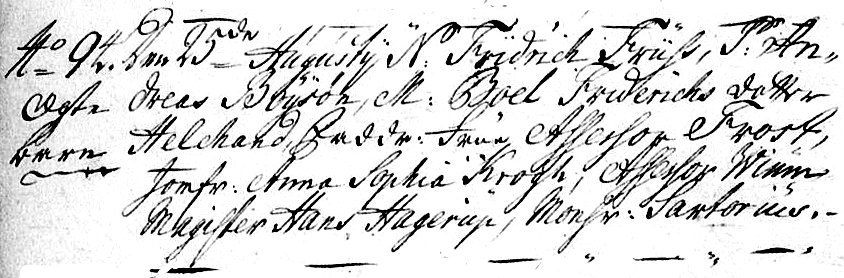 No 94. Den 25de Augustij N: Fridrich Früss, P: An-
Ægte dreas Böysön, M: Boel Friderichs dotter
barn Helchand, Faddr: Frue Assessor Frost,
Jomfr: Anna Sophia Krogh, Assessor Wium
Magister Hans Hagerup, Monsr: Sartorius.-